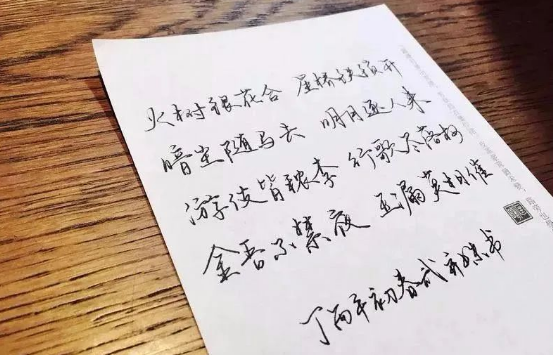 火树银花合 星桥铁锁开
暗尘随马去 明月逐人来
游伎皆秾李 行歌尽落梅
金吾不禁夜 玉漏莫相催
丁酉年初春试新书